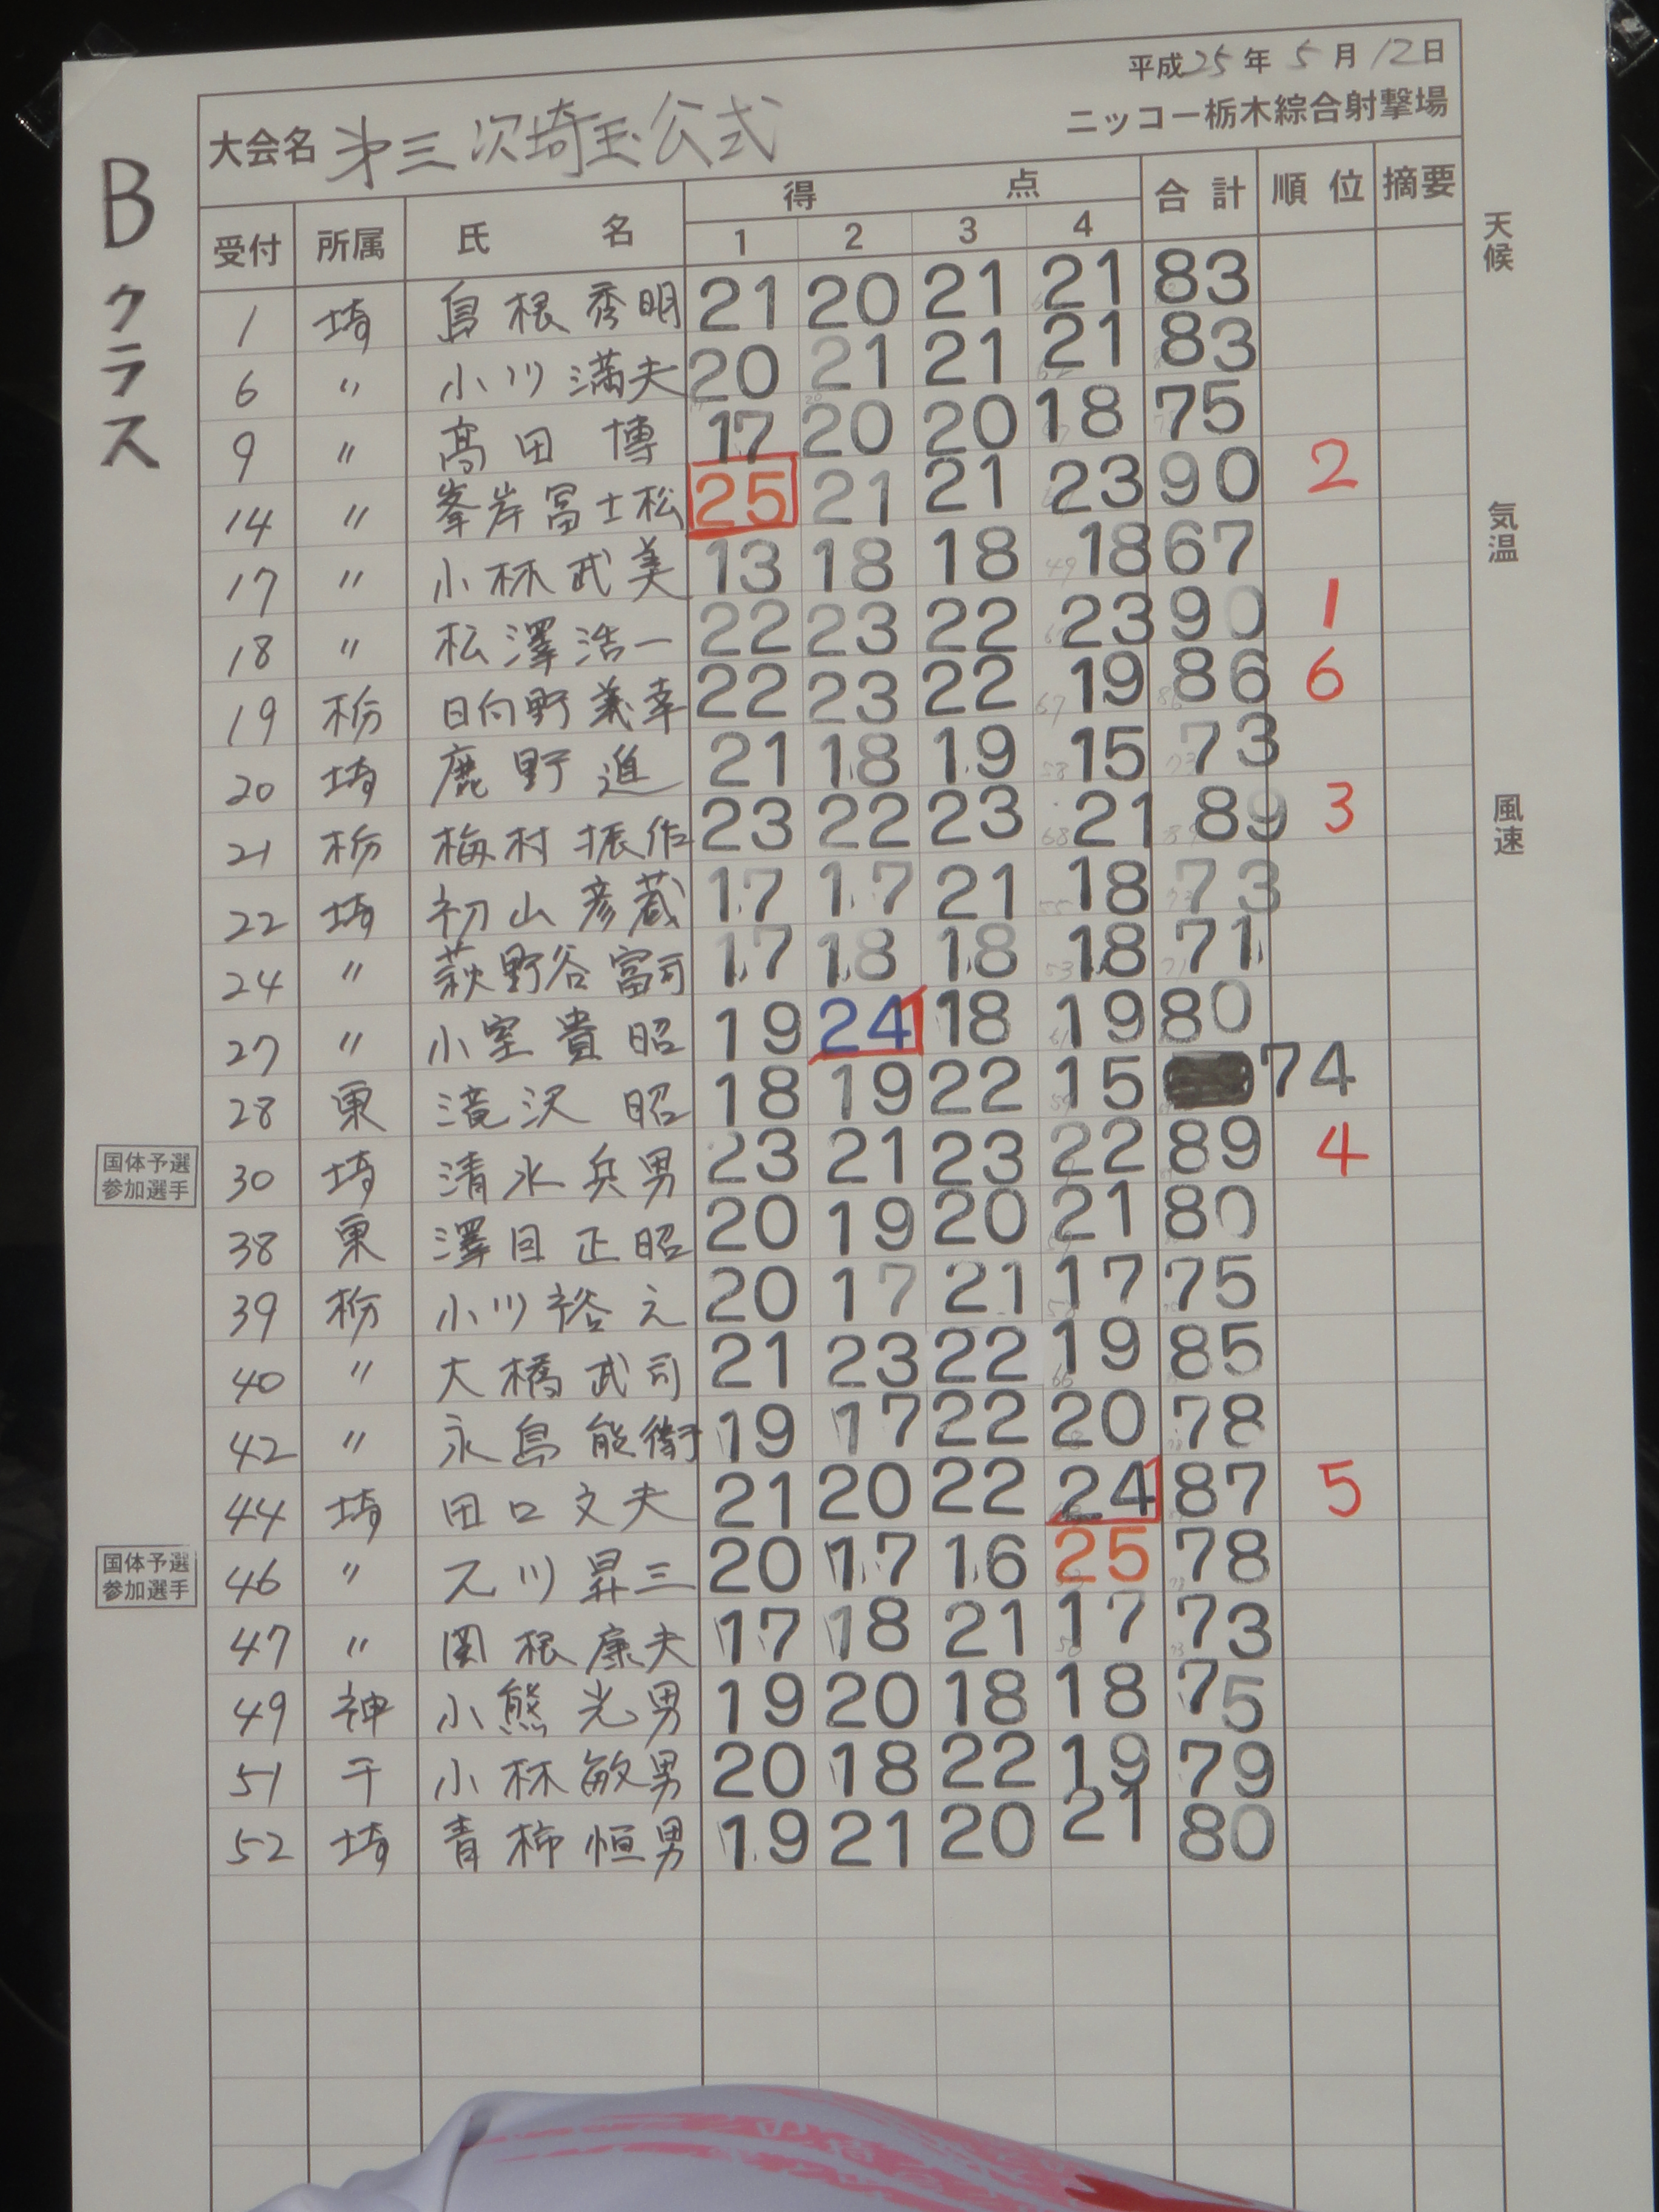 平成25年5月12日
大会名 第三次埼玉公式 ニッコー栃木綜合射撃場
Bクラス
受付 所属 氏名 得点 合計 順位 摘要
1 2 3 4
天候
気温
風速
1 埼 島根秀明 21 20 21 21 83
6 〃 小川満夫 20 21 21 21 83
9 〃 髙田博 17 20 20 18 75
14 〃 峯岸冨士松 25 21 21 23 90 2
17 〃 小林武美 13 18 18 18 67
18 〃 松澤浩一 22 23 22 23 90 1
19 栃 日向野義幸 22 23 22 19 86 6
20 埼 鹿野進 21 18 19 15 73
21 栃 梅村振作 23 22 23 21 89 3
22 埼 初山彦蔵 17 17 21 18 73
24 〃 萩野谷富司 17 18 18 18 71
27 〃 小室貴昭 19 24 18 19 80
28 東 滝沢昭 18 19 22 15 74
国体予選
参加選手
30 埼 清水兵男 23 21 23 22 89 4
38 東 澤目正昭 20 19 20 21 80
39 栃 小川裕之 20 17 21 17 75
40 〃 大橋武司 21 23 22 19 85
42 〃 永島能衛 19 17 22 20 78
44 埼 田口文夫 21 20 22 24 87 5
国体予選
参加選手
46 〃 川昇三 20 17 16 25 78
47 〃 関根康夫 17 18 21 17 73
49 神 小熊光男 19 20 18 18 75
51 千 小林敏男 20 18 22 19 79
52 埼 青柿恒男 19 21 20 21 80